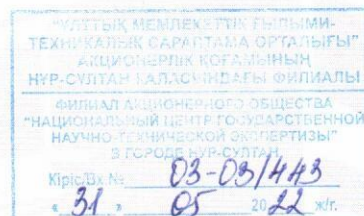 "ҰЛТТЫҚ МЕМЛЕКЕТТІК ҒЫЛЫМИ-
ТЕХНИКАЛЫҚ САРАПТАМА ОРТАЛЫҒЫ"
АКЦИОНЕРЛІК ҚОҒАМЫНЫҢ
НҰР-СҰЛТАН ҚАЛАСЫНДАҒЫ ФИЛИАЛЫ
ФИЛИАЛ АКЦИОНЕРНОГО ОБЩЕСТВА
"НАЦИОНАЛЬНЫЙ ЦЕНТР ГОСУДАРСТВЕННОЙ
НАУЧНО-ТЕХНИЧЕСКОЙ ЭКСПЕРТИЗЫ"
В ГОРОДЕ НУР-СУЛТАН
Кіріс/Вх № 03-03/443
« 31 » 05 2022 ж/г.